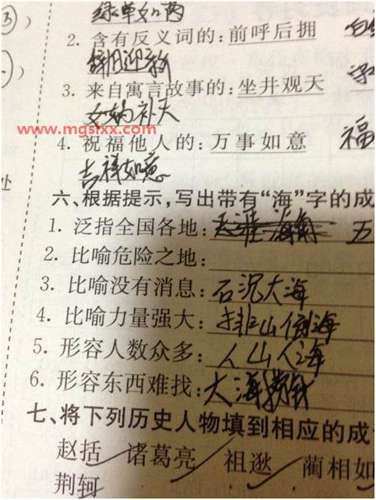 绿草如茵
2. 含有反义词的:前呼后拥
辞旧迎新
3. 来自寓言故事的:坐井观天
女娲补天
www.mgslxx.com
4. 祝福他人的:万事如意 福
吉祥如意
处
六、根据提示,写出带有“海”字的成
1. 泛指全国各地:天涯海角 五
2. 比喻危险之地:
3. 比喻没有消息:石沉大海
4. 比喻力量强大:排山倒海
5. 形容人数众多:人山人海
6. 形容东西难找:大海捞针
七、将下列历史人物填到相应的成
赵括 诸葛亮 祖逖 蔺相如
荆轲